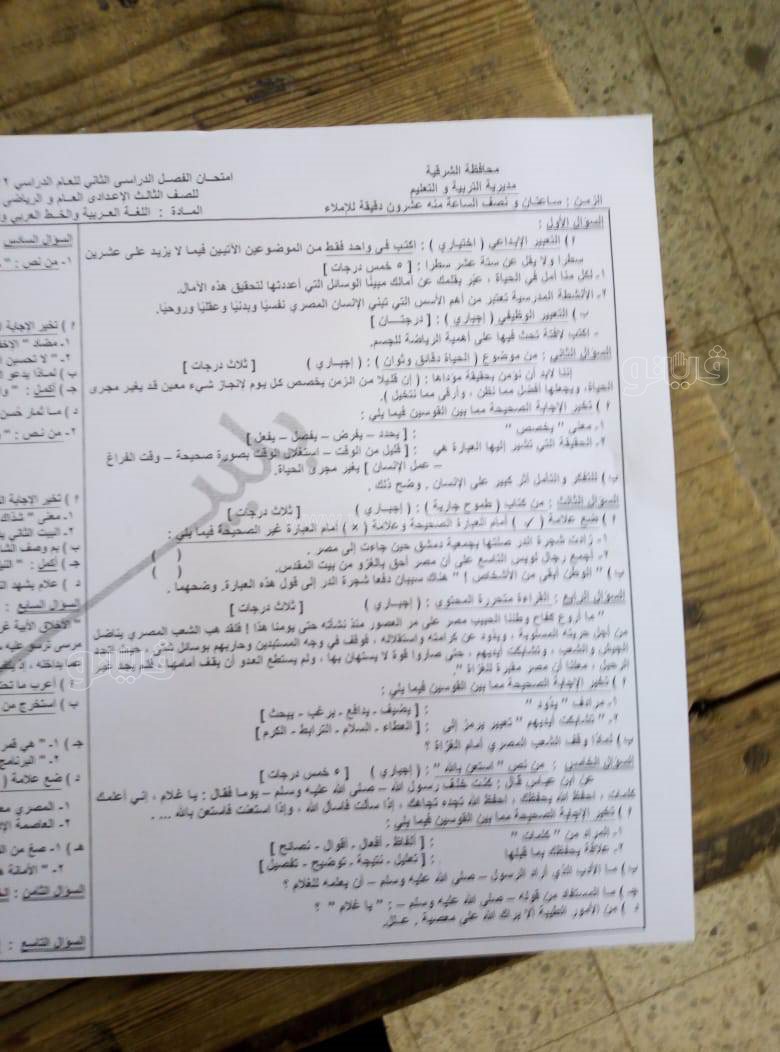 محافظة الشرقية
مديرية التربية و التعليم
الزمن : ساعتان و نصف الساعة منه عشرون دقيقة للإملاء
امتحان الفصل الدراسى الثانى للعام الدراسي
للصف الثالث الإعدادى العام و الرياضي
المادة : اللغة العربية والخط العربي
السؤال الأول :
أ ) التعبير الإبداعي ( اختياري ) : اكتب فى واحد فقط من الموضوعين الآتيين فيما لا يزيد على عشرين
سطرا ولا يقل عن ستة عشر سطرا : [ ٥ خمس درجات ]
١- لكل منا أمل في الحياة ، عبّر بقلمك عن آمالك مبينًا الوسائل التي أعددتها لتحقيق هذه الآمال.
٢- الأنشطة المدرسية تعتبر من أهم الأسس التي تبني الإنسان المصري نفسيًا وبدنيًا وعقليًا وروحيًا.
ب ) التعبير الوظيفي ( إجباري ) : [ درجتـــان ]
- اكتب لافتة تحث فيها على أهمية الرياضة للجسم.
السؤال الثاني : من موضوع ( الحياة دقائق وثوان ) : ( إجباري ) [ ثلاث درجات ]
إننا لابد أن نؤمن بحقيقة مؤداها : ( إن قليلا من الزمن يخصص كل يوم لإنجاز شيء معين قد يغير مجرى
الحياة، ويجعلها أفضل مما نظن ، وأرقى مما نتخيل ).
أ ) تخير الإجابة الصحيحة مما بين القوسين فيما يلي :
١- معنى " يخصص " : [ يحدد – يفرض – يفصل – يفعل ]
٢- الحقيقة التي تشير إليها العبارة هي : [ قليل من الوقت – استغلال الوقت بصورة صحيحة – وقت الفراغ
– عمل الإنسان ] يغير مجرى الحياة.
ب ) للتفكر والتأمل أثر كبير على الإنسان . وضح ذلك .
السؤال الثالث : من كتاب ( طموح جارية ) : ( إجباري ) [ ثلاث درجات ]
أ ) ضع علامة ( ✓ ) أمام العبارة الصحيحة وعلامة ( × ) أمام العبارة غير الصحيحة فيما يلي :
١- زادت شجرة الدر صلتها بجمعية دمشق حين جاءت إلى مصر . ( )
٢- أجمع رجال لويس التاسع على أن مصر أحق بالغزو من بيت المقدس. ( )
ب ) " الوطن أبقى من الأشخاص ! " هناك سببان دفعا شجرة الدر إلى قول هذه العبارة. وضحهما .
السؤال الرابع : القراءة متحررة المحتوي : ( إجباري ) [ ثلاث درجات ]
" ما أروع كفاح وطننا الحبيب مصر على مر العصور منذ نشأته حتى يومنا هذا ! فلقد هب الشعب المصري يناضل
من أجل حريته المسلوبة ، ويذود عن كرامته واستقلاله ، فوقف في وجه المستبدين وحاربهم بوسائل شتى ،
الجيش والشعب ، وتشابكت أيديهم ، حتى صاروا قوة لا يستهان بها ، ولم يستطع العدو أن يقف أمامها ، فلم يجد غير
الرحيل ، معلنا أن مصر مقبرة للغزاة ".
أ ) تخير الإجابة الصحيحة مما بين القوسين فيما يلي :
١- مرادف " يذود " : [ يضيف - يدافع - يرغب - يبحث ]
٢- " تشابكت أيديهم " تعبير يرمز إلى : [ العطاء - السلام - الترابط - الكرم ]
ب ) لماذا وقف الشعب المصري أمام الغزاة ؟
السؤال الخامس : من نص " استعن بالله " : ( إجباري ) [ ٥ خمس درجات ]
عن ابن عباس قال : كنت خلف رسول الله – صلى الله عليه وسلم – يوما فقال : يا غلام ، إني أعلمك
كلمات ، احفظ الله يحفظك ، احفظ الله تجده تجاهك ، إذا سألت فاسأل الله ، وإذا استعنت فاستعن بالله .... .
أ ) تخير الإجابة الصحيحة مما بين القوسين فيما يلي :
١- المراد من " كلمات " : [ ألفاظ - أفعال - أقوال - نصائح ]
٢- علاقة يحفظك بما قبلها : [ تعليل - نتيجة - توضيح - تفصيل ]
ب ) ما الأدب الذي أراد الرسول – صلى الله عليه وسلم – أن يعلمه للغلام ؟
جـ ) ما المستفاد من قوله – صلى الله عليه وسلم – : " يا غلام " ؟
د ) من الأمور الطيبة ألا يراك الله على معصية . علل.
السؤال السادس
١- من نص : "
أ ) تخير الإجابة
١- مضاد "
٢- " لا تحسبن
ب ) لماذا يدعو
جـ ) أكمل : "
د ) ما ثمار حسن
٢- من نص : "
أ ) تخير الإجابة
١- معنى "
٢- البيت الثاني
ب ) بم وصف
جـ ) أكمل : "
د ) علام يشهد
السؤال السابع :
" الأخلاق الأبية
أ ) أعرب ما
ب ) استخرج من
جـ ) ١- " هي
٢- " البرنامج
د ) ضع علامة (
١- المصري
٢- العاصمة
هـ ) ١- صغ من
٢- " الأمانة
السؤال الثامن :
السؤال التاسع :
فيتو
فيتو